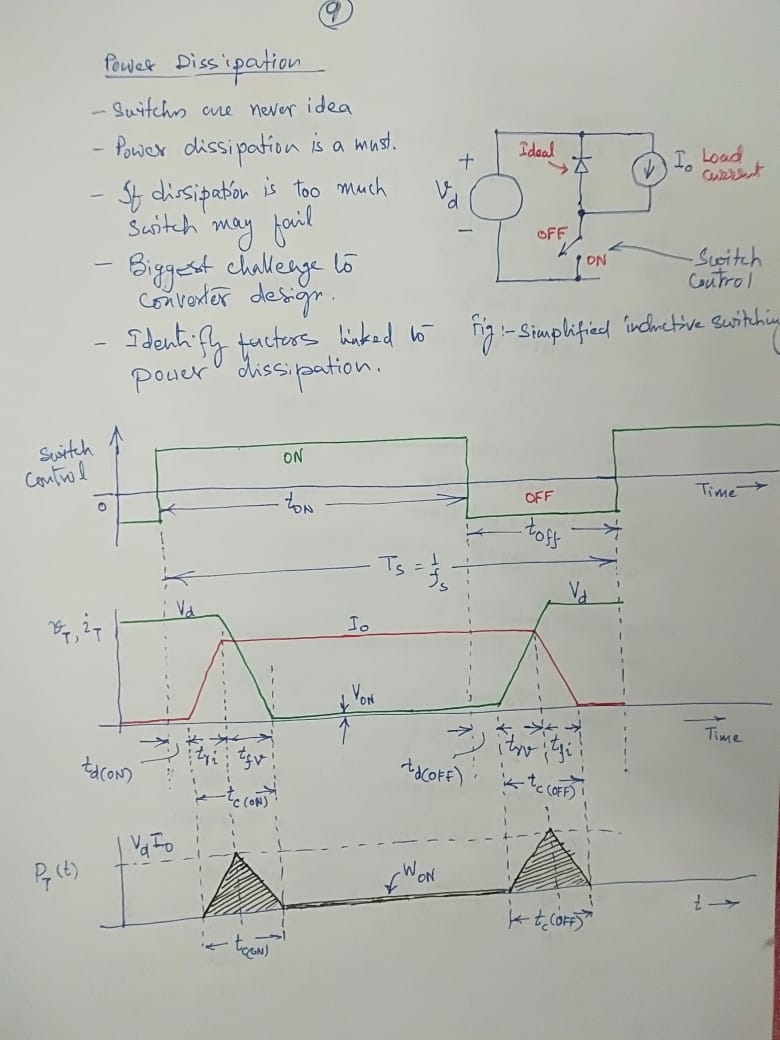 9
Power Dissipation
- Switchs are never idea
- Power dissipation is a must.
- If dissipation is too much
switch may fail
- Biggest challenge to
converter design.
- Identify factors linked to
power dissipation.
+
Vd
-
Ideal
Io Load
current
OFF
ON
Switch
Control
Fig :- Simplified inductive switching
Switch
Control
0
ON
tON
OFF
toff
Time
Ts = 1/fs
vT, iT
Vd
Io
VON
Vd
Time
td(ON)
tri
tfv
tc(ON)
td(OFF)
trv
tfi
tc(OFF)
PT(t)
VdIo
WON
t
tc(ON)
tc(OFF)